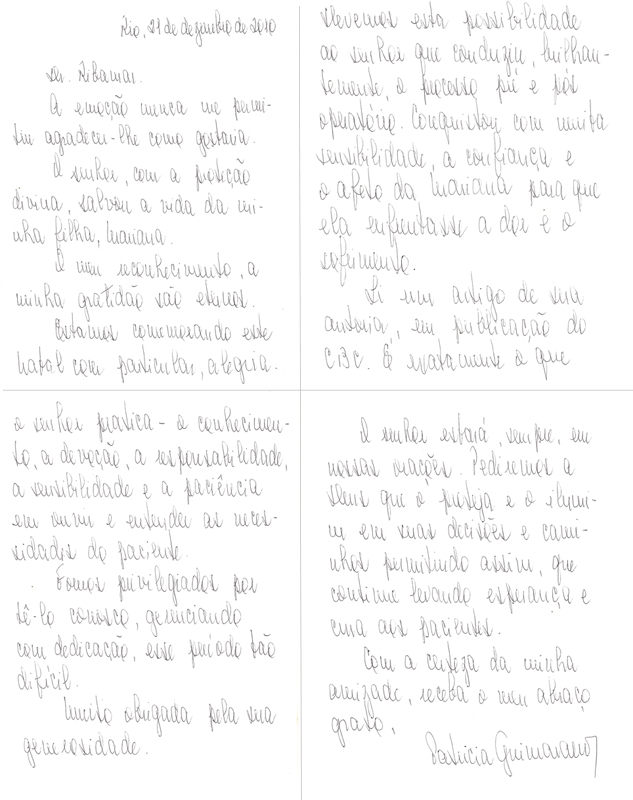 Rio, 21 de dezembro de 2010
Dr. Ribamar.
A emoção nunca me permi-
tiu agradecer-lhe como gostaria.
O senhor, com a proteção
divina, salvou a vida da mi-
nha filha, Mariana.
O meu reconhecimento, a
minha gratidão são eternos.
Estamos comemorando este
Natal com particular, alegria.
Devemos esta possibilidade
ao senhor que conduziu, brilhan-
temente, o processo pré e pós
operatório. Conquistou com muita
sensibilidade, a confiança e
o afeto da Mariana para que
ela enfrentasse a dor e o
sofrimento.
Li um artigo de sua
autoria, em publicação do
CBC. É exatamente o que
o senhor pratica - o conhecimen-
to, a devoção, a responsabilidade,
a sensibilidade e a paciência
em ouvir e entender as neces-
sidades do paciente.
Fomos privilegiados por
tê-lo conosco, gerenciando
com dedicação, esse período tão
difícil.
Muito obrigada pela sua
generosidade.
O senhor estará, sempre, em
nossas orações. Pediremos a
Deus que o proteja e o ilumi-
ne em suas decisões e cami-
nhos permitindo assim, que
continue levando esperança e
cura aos pacientes.
Com a certeza da minha
amizade, receba o meu abraço
grato,
Patricia Guimaraes